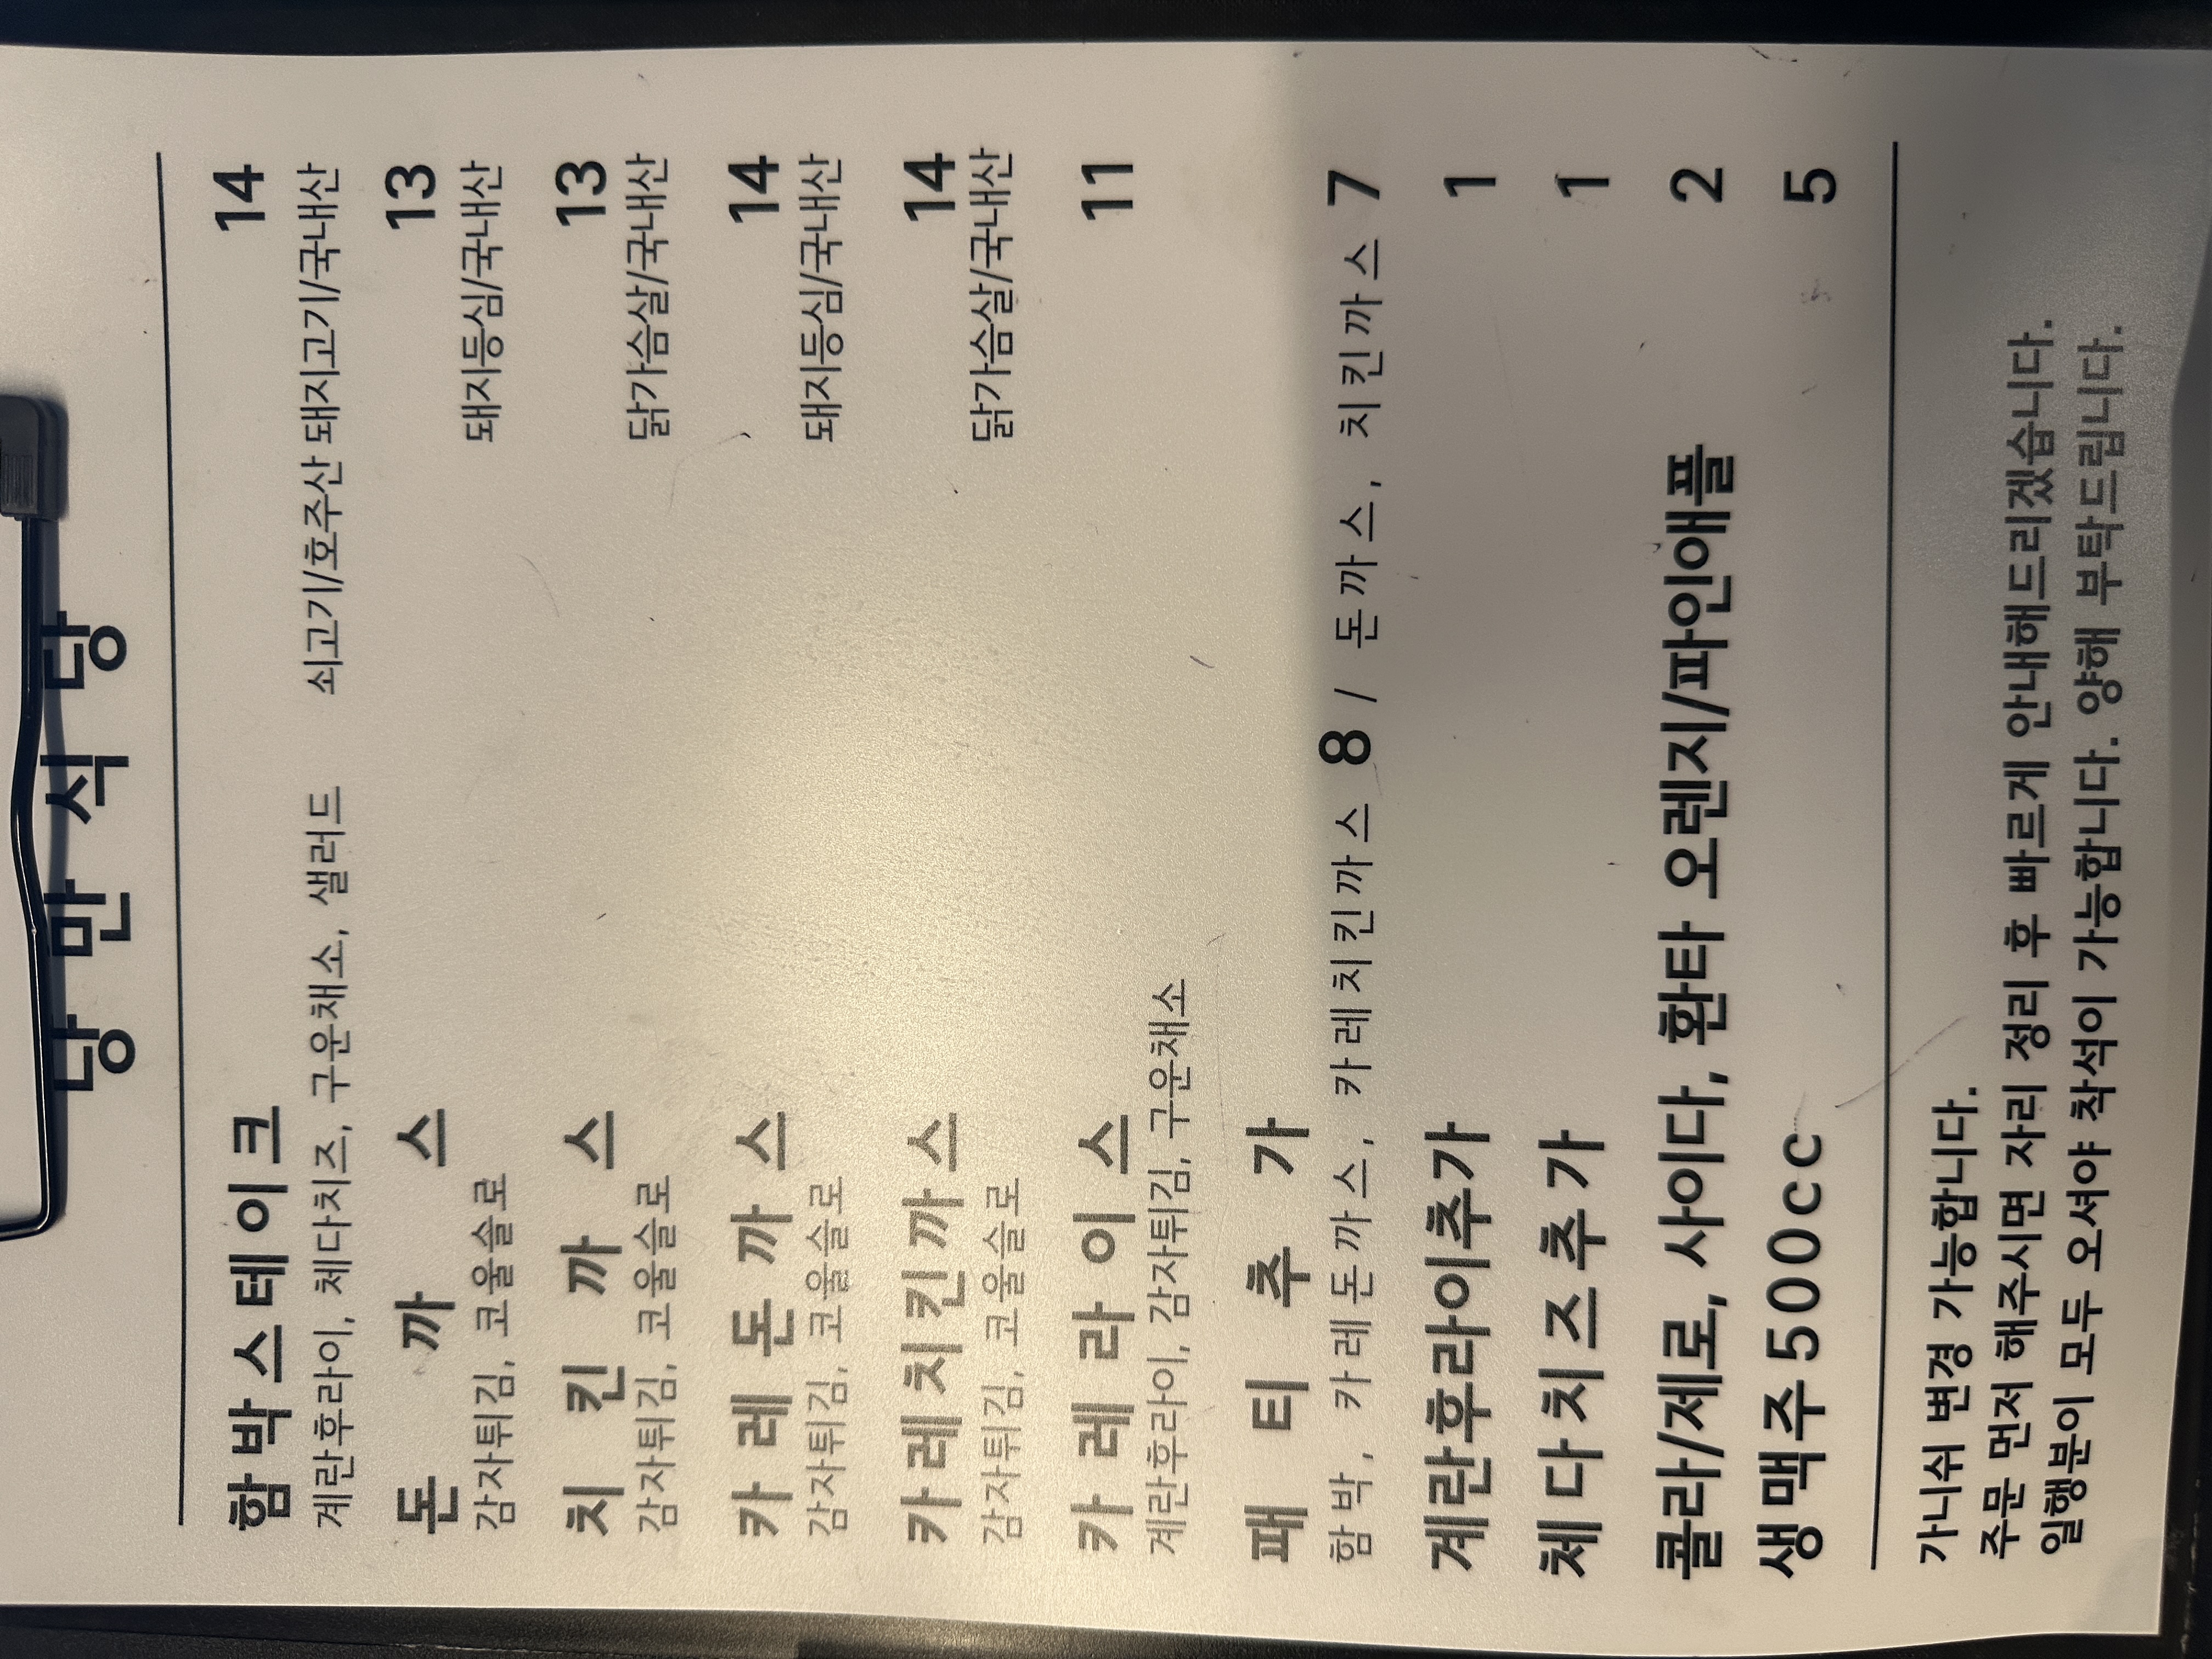 당만식당
함박스테이크 14
계란후라이, 체다치즈, 구운채소, 샐러드 쇠고기/호주산 돼지고기/국내산
돈까스 13
감자튀김, 코울슬로 돼지등심/국내산
치킨까스 13
감자튀김, 코울슬로 닭가슴살/국내산
카레돈까스 14
감자튀김, 코울슬로 돼지등심/국내산
카레치킨까스 14
감자튀김, 코울슬로 닭가슴살/국내산
카레라이스 11
계란후라이, 감자튀김, 구운채소
패티추가
함박, 카레돈까스, 카레치킨까스 8 / 돈까스, 치킨까스 7
계란후라이추가 1
체다치즈추가 1
콜라/제로, 사이다, 환타 오렌지/파인애플 2
생맥주500cc 5
가니쉬 변경 가능합니다.
주문 먼저 해주시면 자리 정리 후 빠르게 안내해드리겠습니다.
일행분이 모두 오셔야 착석이 가능합니다. 양해 부탁드립니다.